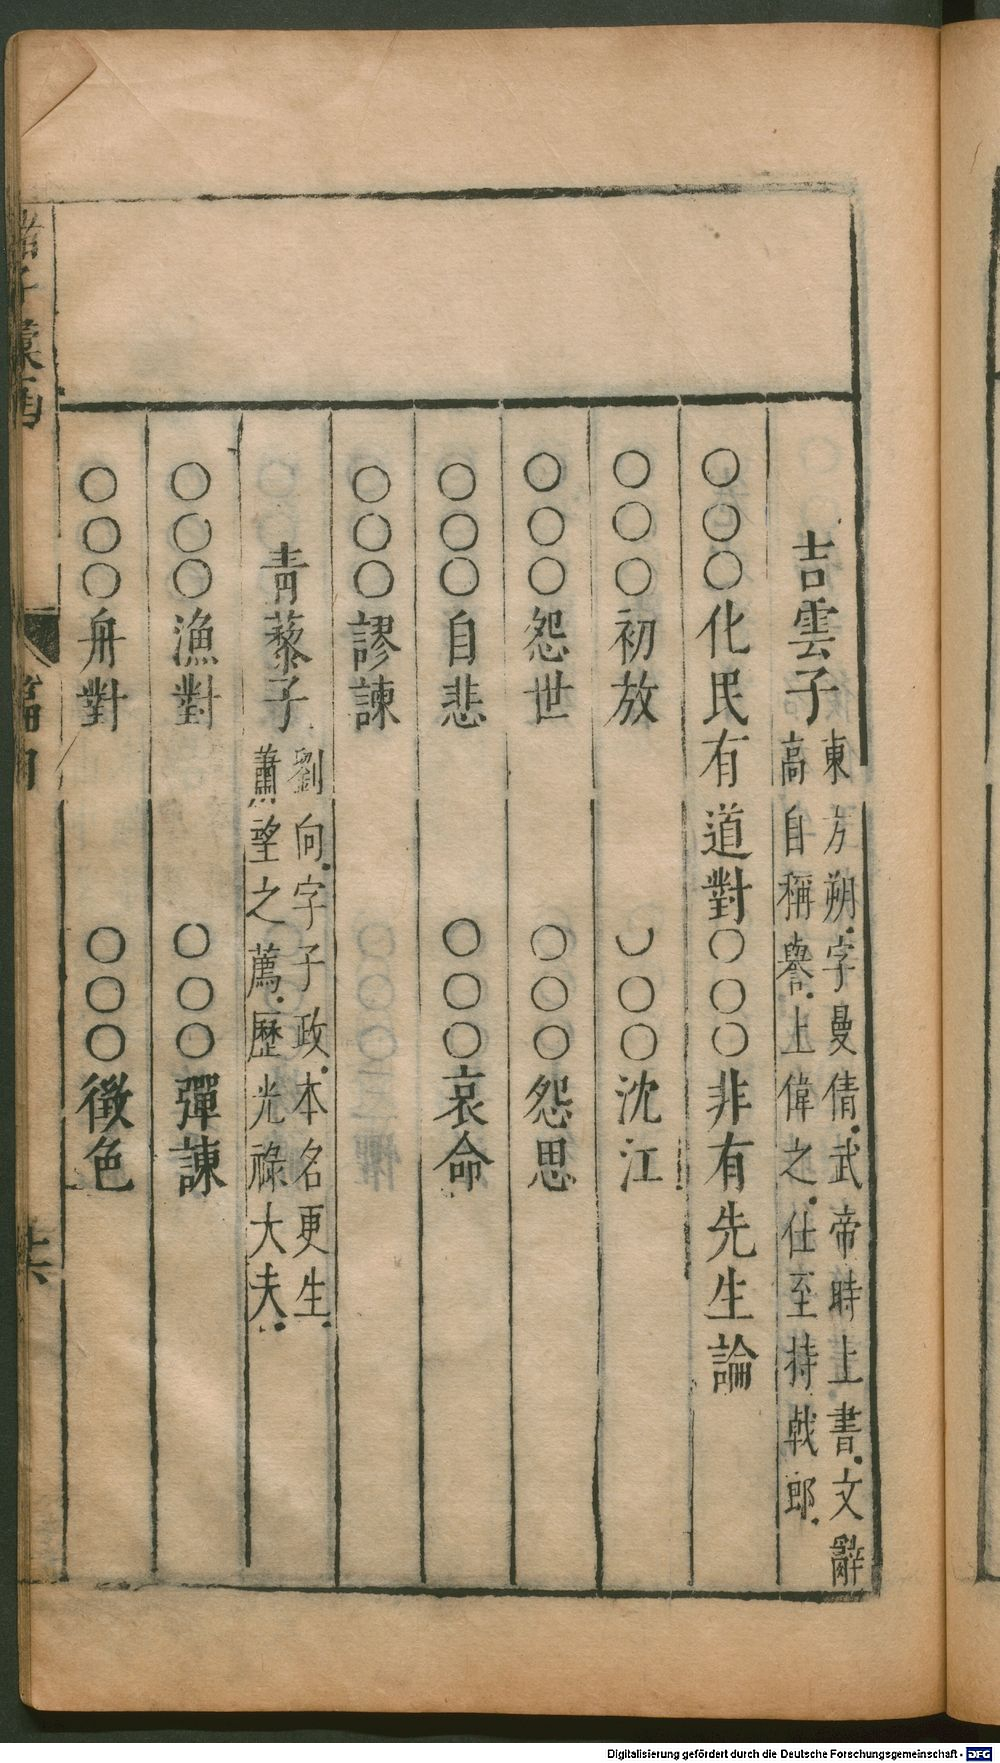 吉雲子 東方朔字曼倩武帝時上書文辭
高自稱譽上偉之仕至持戟郎
○○○化民有道對○○○非有先生論
○○○初放 ○○○沈江
○○○怨世 ○○○怨思
○○○自悲 ○○○哀命
○○○謬諫
青藜子 劉向字子政本名更生
蕭望之薦歷光祿大夫
○○○漁對 ○○○彈諫
○○○舟對 ○○○徵色
Digitalisierung gefördert durch die Deutsche Forschungsgemeinschaft - DFG